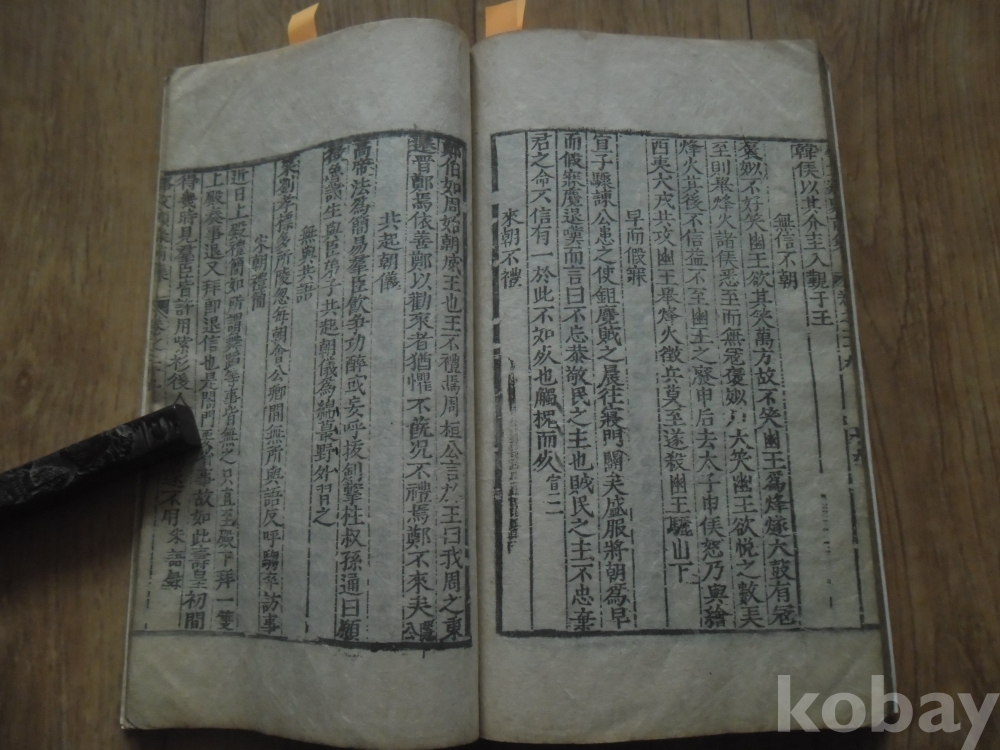 韓侯以其介圭入覲于王
無信不朝
褒姒不好笑幽王欲其笑萬方故不笑幽王爲烽燧大鼓有寇
至則舉烽火諸侯悉至而無寇褒姒乃大笑幽王欲悅之數
烽火其後不信益不至幽王之廢申后去太子申侯怒乃與繒
西夷犬戎共攻幽王舉烽火徵兵莫至遂殺幽王驪山下
早而假寐
宣子驟諫公患之使鉏麑賊之晨往寢門闢矣盛服將朝爲早
而假寐麑退嘆而言曰不忘恭敬民之主也賊民之主不忠棄
君之命不信有一於此不如死也觸槐而死宣二
來朝不禮
鄭伯如周始朝威王也王不禮焉周桓公言於王曰我周之東
遷晋鄭焉依善鄭以勸來者猶懼不蔇况不禮焉鄭不來矣
共起朝儀
高帝法爲簡易羣臣飮爭功醉或妄呼拔劍擊柱叔孫通曰願
徵魯諸生與臣弟子共起朝儀爲綿蕞野外習之
無與共語
劉孝標多所陵忽每朝會公卿間無所與語反呼騶卒訪事
宋朝禮簡
近日上殿禮簡如所謂舞蹈等事皆無之只直至殿下拜一雙
上殿奏事退又拜即退信也是閤門 事故如此壽皇初間
得幾時見羣臣皆許用紫衫後 不用朱語錄
kobay